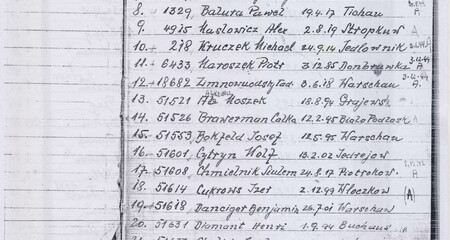 8. 1329, Batura Paweł 19.4.17 Tichau
9. 4915 Maslowicz Alex 2.8.19 Stropkow A
10. 218 Kruczek Michael 24.9.14 Jedlownik
11. 6433 Maroszek Piotr 3.12.85 Dombrowka A
12. 18682 Zimnowodsky Tad. 8.6.18 Warschau A.
13. 51521 Ab Moszek 15.8.94 Grajewsk
14. 51526 Brawerman Calka 12.2.95 Biala Podlask
15. 51553 Bokfeld Josef 12.5.95 Warschau
16. 51601, Cytryn Wolf 13.2.02 Jedrejow
17. 51608, Chmielnik Szulem 24.8.17 Piotrkow A
18. 51614 Cukrows Izer 2.12.99 Wloczkow (A)
19. 51618 Danciger Benjamin 25.7.01 Warschau
20. 51631 Diamant Henri 1.9.94